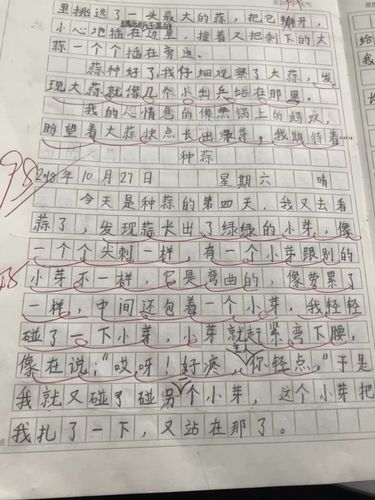 里挑选了一头最大的蒜，把它掰开，
小心地插在边里，接着又把剩下的大
蒜一个个插在旁边。
蒜种好了，我仔细观察了大蒜，发
现大蒜就像几个小利兵站在那里。
我的心情急的像热锅上的蚂蚁，
盼望着大蒜快点长出绿芽，我期待着……
种蒜
98
2018年10月27日 星期六 晴
今天是种蒜的第四天，我又去看
蒜了，发现蒜长出了绿绿的小芽，像
一个个尖刺一样，有一个小芽跟别的
小芽不一样，它是弯曲的，像费累了
一样，中间还包着一个小芽，我轻轻
碰了一下小芽，小芽就赶紧弯下腰，
像在说："哎呀！好疼，主人你轻点，"于是
我就又碰了碰另个小芽，这个小芽把
我扎了一下，又站在那了。